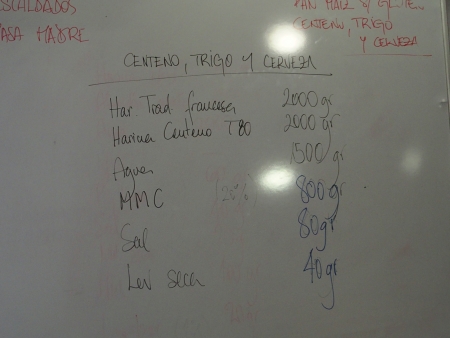 ESCALDADOS
MASA MADRE
PAN MAIZ S/ GLUTEN
CENTENO, TRIGO
Y CERVEZA
CENTENO, TRIGO Y CERVEZA
Har. Trad. francesa 2000 gr
Harina Centeno T80 2000 gr
Agua 1500 gr
MMC (20%) 800 gr
Sal 80 gr
Lev seca 40 gr